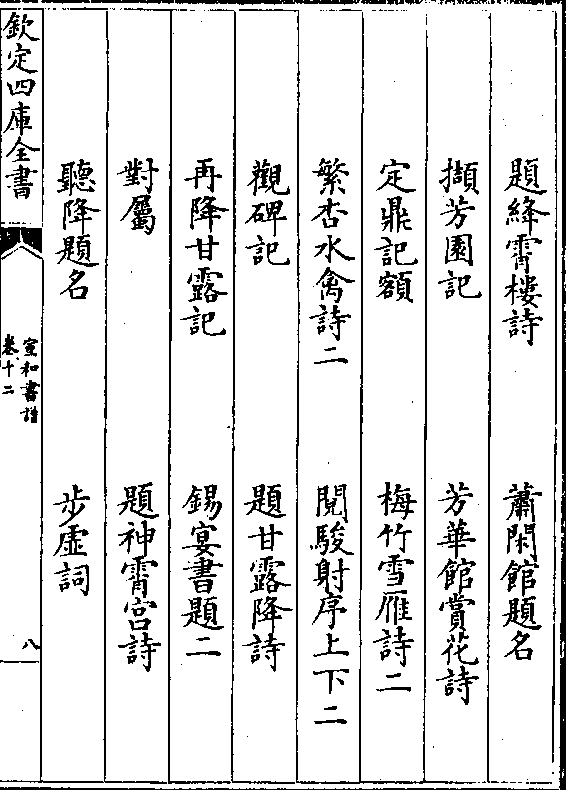 題絳霄樓詩　蕭閑館題名
擷芳園記　芳華館賞花詩
定鼎記額　梅竹雪雁詩二
繁杏水禽詩二　閱駿射序上下二
觀碑記　題甘露降詩
再降甘露記　錫宴書題二
對屬　題神霄宮詩
聽降題名　步虛詞
欽定四庫全書
宣和書譜
卷十二
八